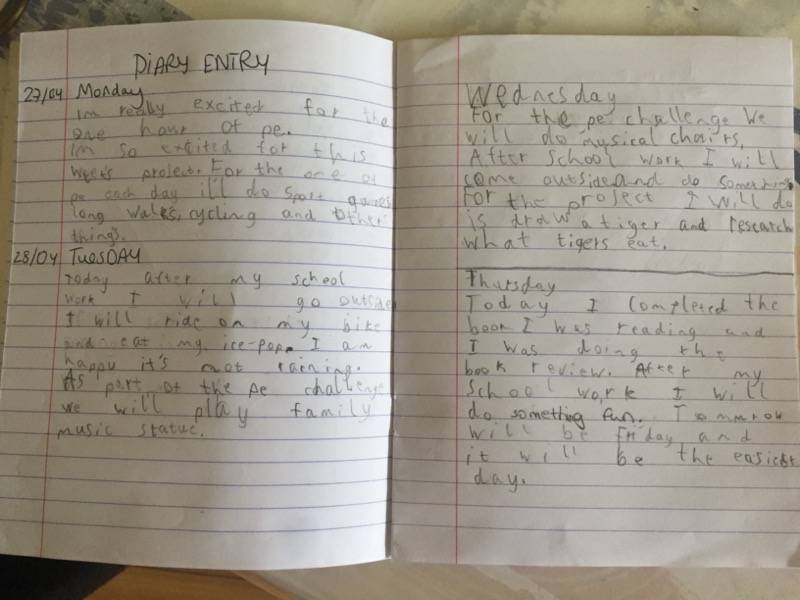 DIARY ENTRY
27/04 Monday
im really excited for the
one hour of pe.
im so excited for this
week's project. For the one of
pe each day ill do sport games
long walks, cycling and other
things.
28/04 TUESDAY
Today after my school
work I will go outside
I will ride on my bike
and eat my ice-pop. I am
happy it's not raining.
As part of the pe challenge
we will play family
music statue.
Wednesday
For the pe challenge We
will do musical chairs.
After school work I will
come outside and do something
For the project I will do
is draw a tiger and research
what tigers eat.
Thursday
Today I completed the
book I was reading and
I was doing the
book review. After my
School work I will
do something fun. Tommrow
will be friday and
it will be the easiest
day.